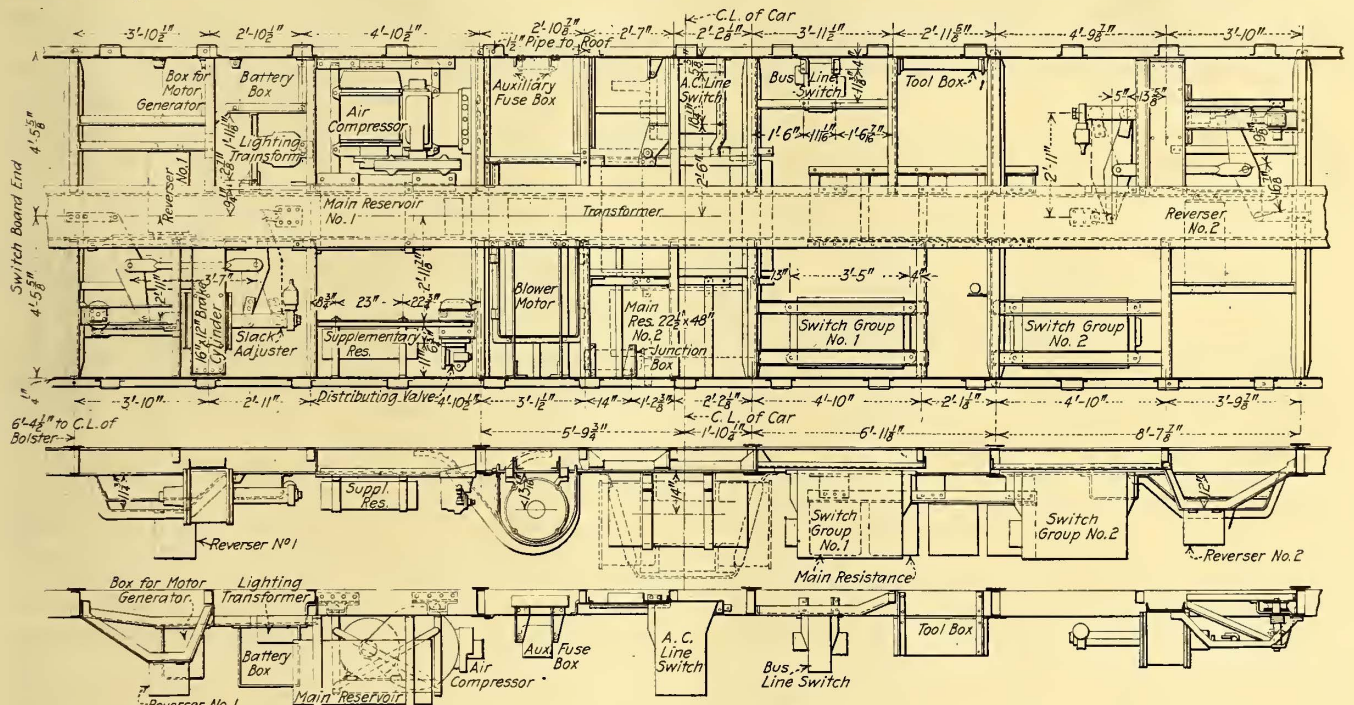 C.L. of Car
3'-10½" 2'-10½" 4'-10½" 2'-10⅞" 2'-7" 2'-2⅛" 3'-11½" 2'-11⅝" 4'-9⅞" 3'-10"
1½" Pipe to Roof
Box for Motor Generator
Battery Box
Air Compressor
Auxiliary Fuse Box
A.C. Line Switch
Bus Line Switch
Tool Box
5" 13⅝"
1'-6" 11 1/16" 1'-6 7/16"
Lighting Transform
Reverser No.1
4'-5⅝"
2'-6"
2'-11"
Switch Board End
Main Reservoir No. 1
Transformer
Reverser No.2
4'-5⅝"
3'-7"
2'-11"
16"x12" Brake Cylinder
Slack Adjuster
8¾" 23" 22¾"
2'-11½"
Supplementary Res.
11"
Blower Motor
Main Res. 22½"x48" No.2
Junction Box
13" 3'-5" 4"
Switch Group No. 1
Switch Group No. 2
4"
3'-10" 2'-11" Distributing Valve 4'-10½" 3'-1½" 14" 1'-2⅜" 2'-2⅛" 4'-10" 2'-1⅛" 4'-10" 3'-9⅞"
C.L. of Car
6'-4½" to C.L. of Bolster
5'-9¾" 1'-10¼" 6'-11⅛" 8'-7⅞"
11¼"
Suppl. Res.
14"
Switch Group No.1
Switch Group No.2
12"
Reverser Nº1
Main Resistance
Reverser No.2
Box for Motor Generator
Lighting Transformer
Battery Box
Main Reservoir
Air Compressor
Aux. Fuse Box
A.C. Line Switch
Bus Line Switch
Tool Box
Reverser No.1